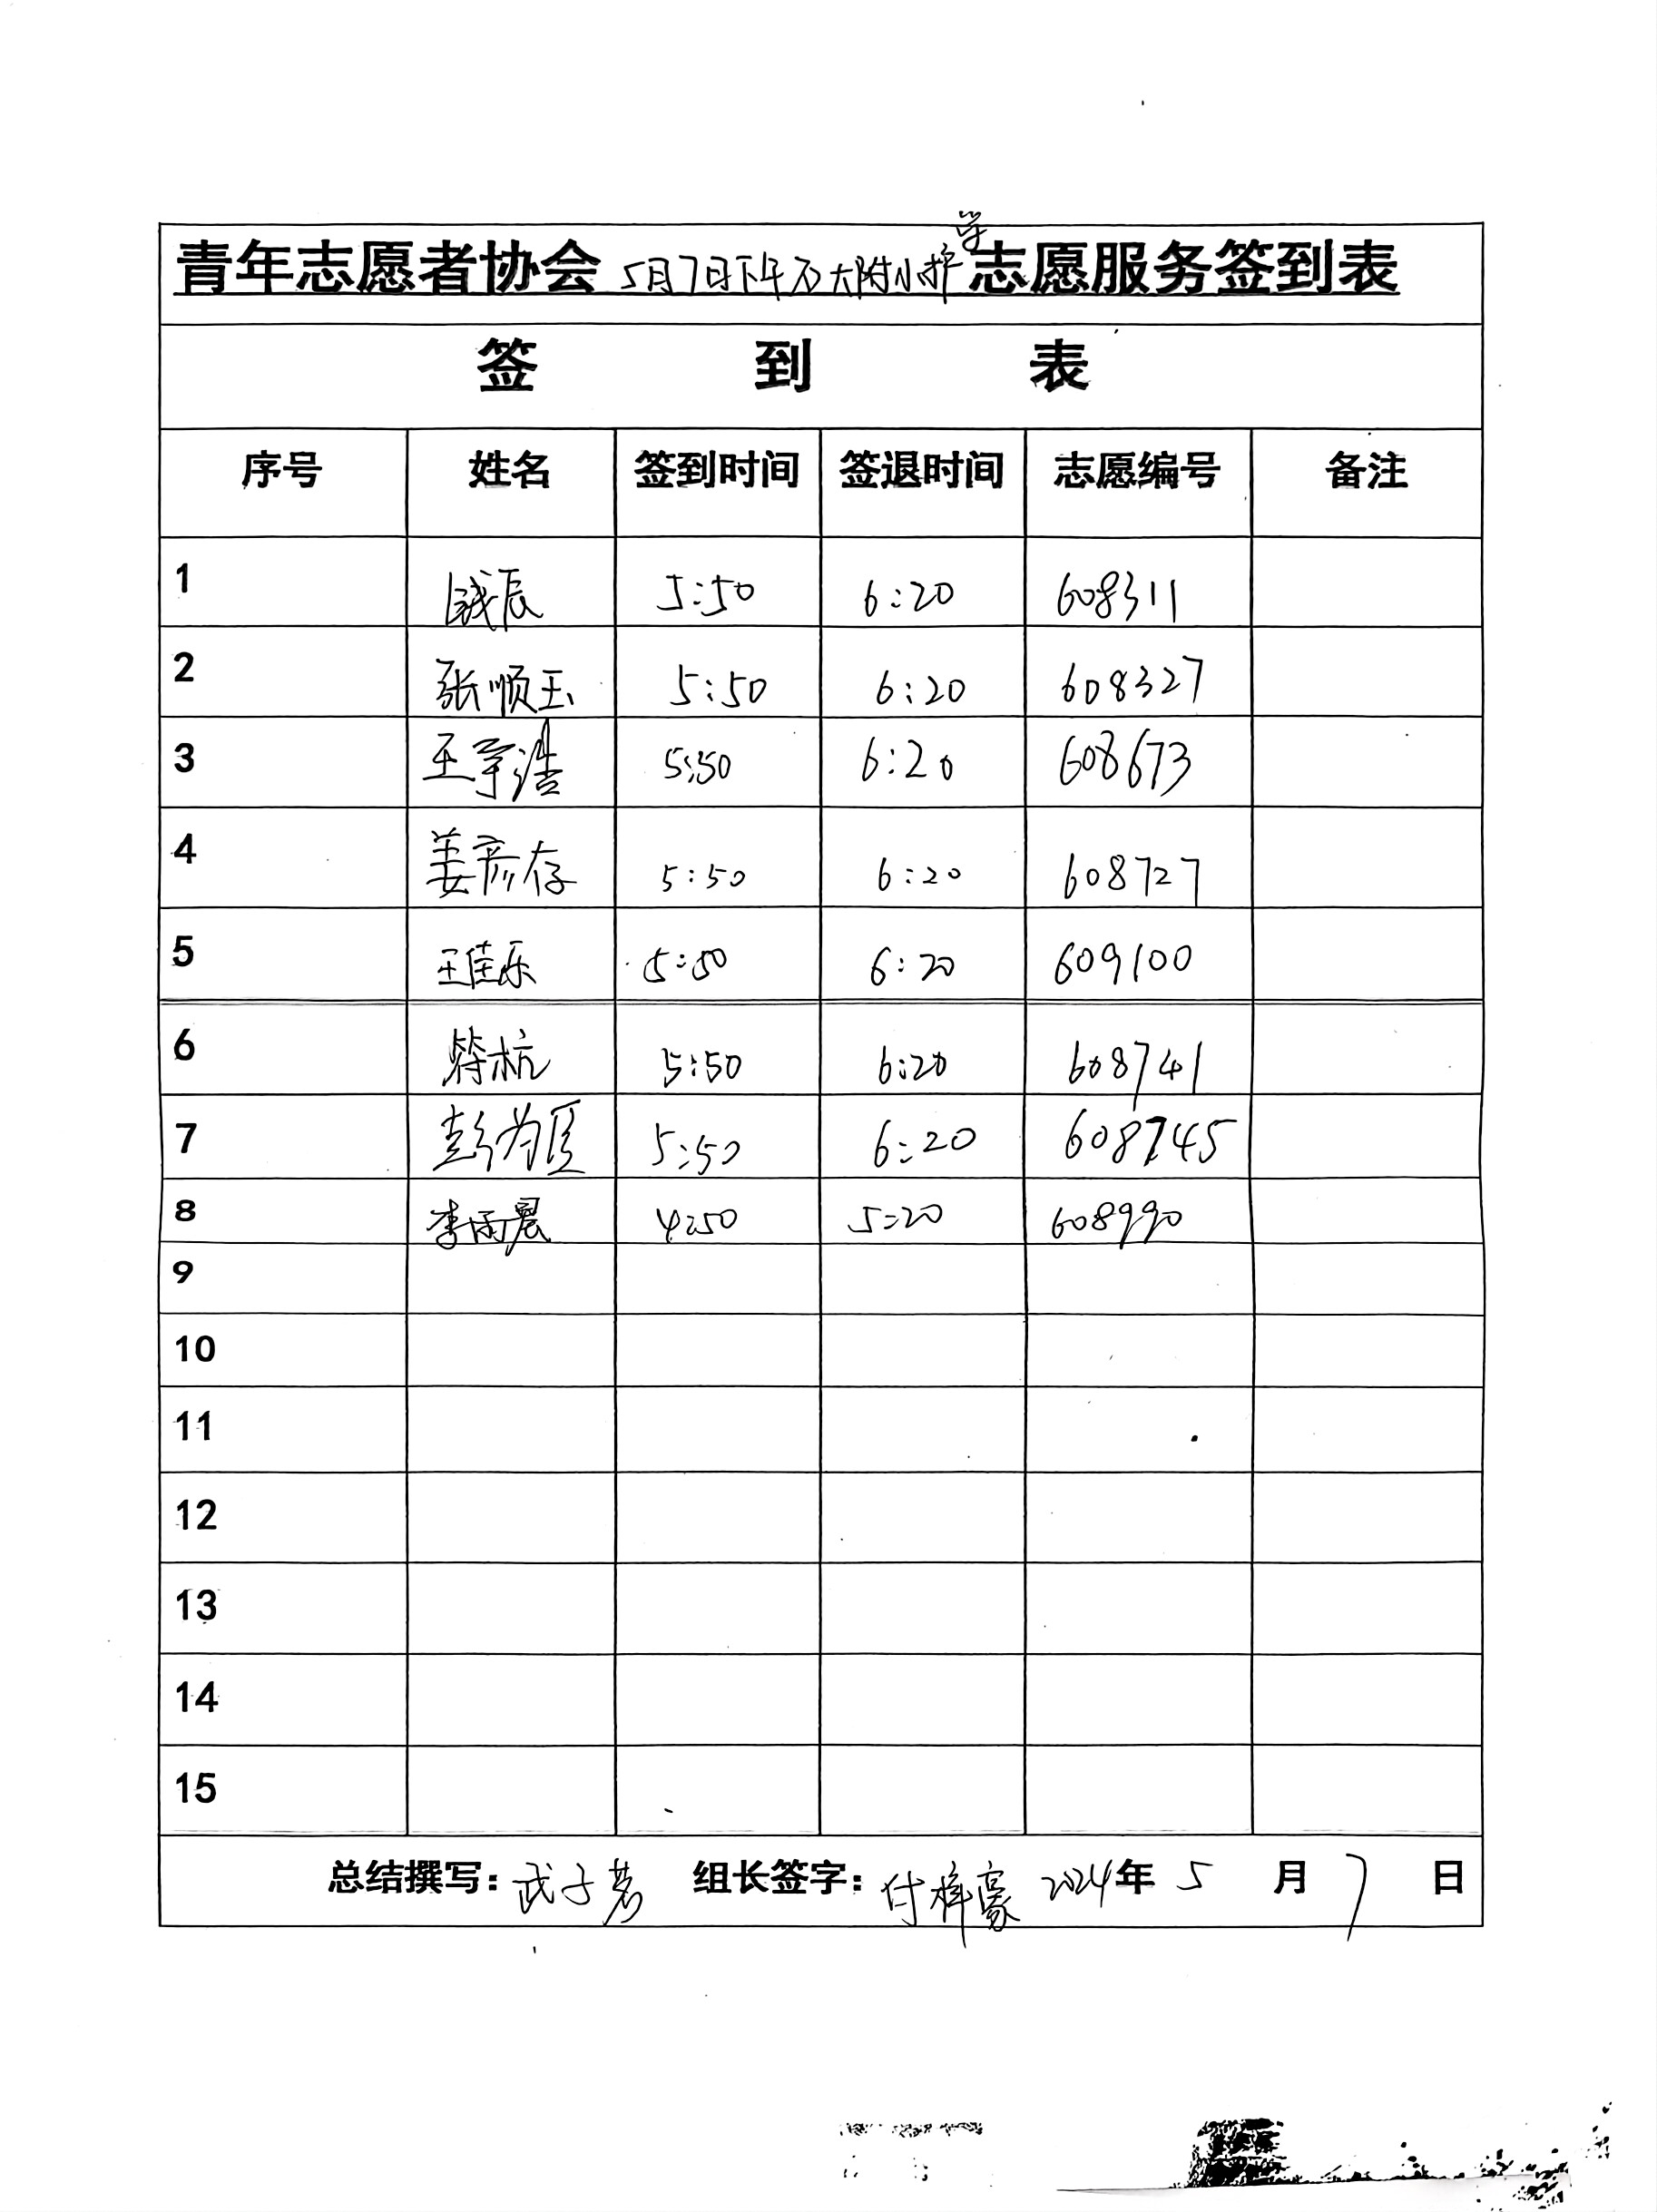 青年志愿者协会5月7日下午石大附小护学志愿服务签到表
签 到 表
序号 姓名 签到时间 签退时间 志愿编号 备注
1 辰 5:50 6:20 608311
2 张顺玉 5:50 6:20 608327
3 王宇浩 5:50 6:20 608673
4 姜彦存 5:50 6:20 608727
5 王佳乐 5:50 6:20 609100
6 符杭 5:50 6:20 608741
7 彭为臣 5:50 6:20 608745
8 李雨晨 4:50 5:20 608990
9
10
11
12
13
14
15
总结撰写: 武子茗 组长签字: 付梓豪 2024年 5 月 7 日